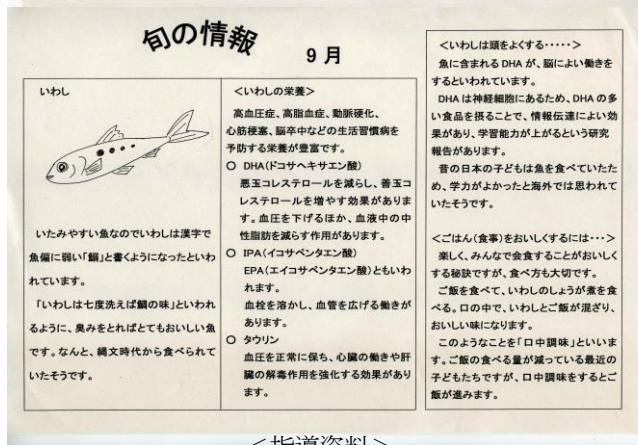 旬の情報
9月
いわし
いたみやすい魚なのでいわしは漢字で
魚偏に弱い「鰯」と書くようになったといわ
れています。
「いわしは七度洗えば鯛の味」といわれ
るように、臭みをとればとてもおいしい魚
です。なんと、縄文時代から食べられて
いたそうです。
<いわしの栄養>
高血圧症、高脂血症、動脈硬化、
心筋梗塞、脳卒中などの生活習慣病を
予防する栄養が豊富です。
○ DHA(ドコサヘキサエン酸)
悪玉コレステロールを減らし、善玉コ
レステロールを増やす効果がありま
す。血圧を下げるほか、血液中の中
性脂肪を減らす作用があります。
○ IPA(イコサペンタエン酸)
EPA(エイコサペンタエン酸)ともいわ
れます。
血栓を溶かし、血管を広げる働きが
あります。
○ タウリン
血圧を正常に保ち、心臓の働きや肝
臓の解毒作用を強化する効果があり
ます。
<いわしは頭をよくする・・・・・>
魚に含まれる DHA が、脳によい働きを
するといわれています。
DHA は神経細胞にあるため、DHA の多
い食品を摂ることで、情報伝達によい効
果があり、学習能力が上がるという研究
報告があります。
昔の日本の子どもは魚を食べていたた
め、学力がよかったと海外では思われて
いたそうです。
<ごはん(食事)をおいしくするには・・・>
楽しく、みんなで会食することがおいしく
する秘訣ですが、食べ方も大切です。
ご飯を食べて、いわしのしょうが煮を食
べる。口の中で、いわしとご飯が混ざり、
おいしい味になります。
このようなことを「口中調味」といいま
す。ご飯の食べる量が減っている最近の
子どもたちですが、口中調味をするとご
飯が進みます。
<指導資料>